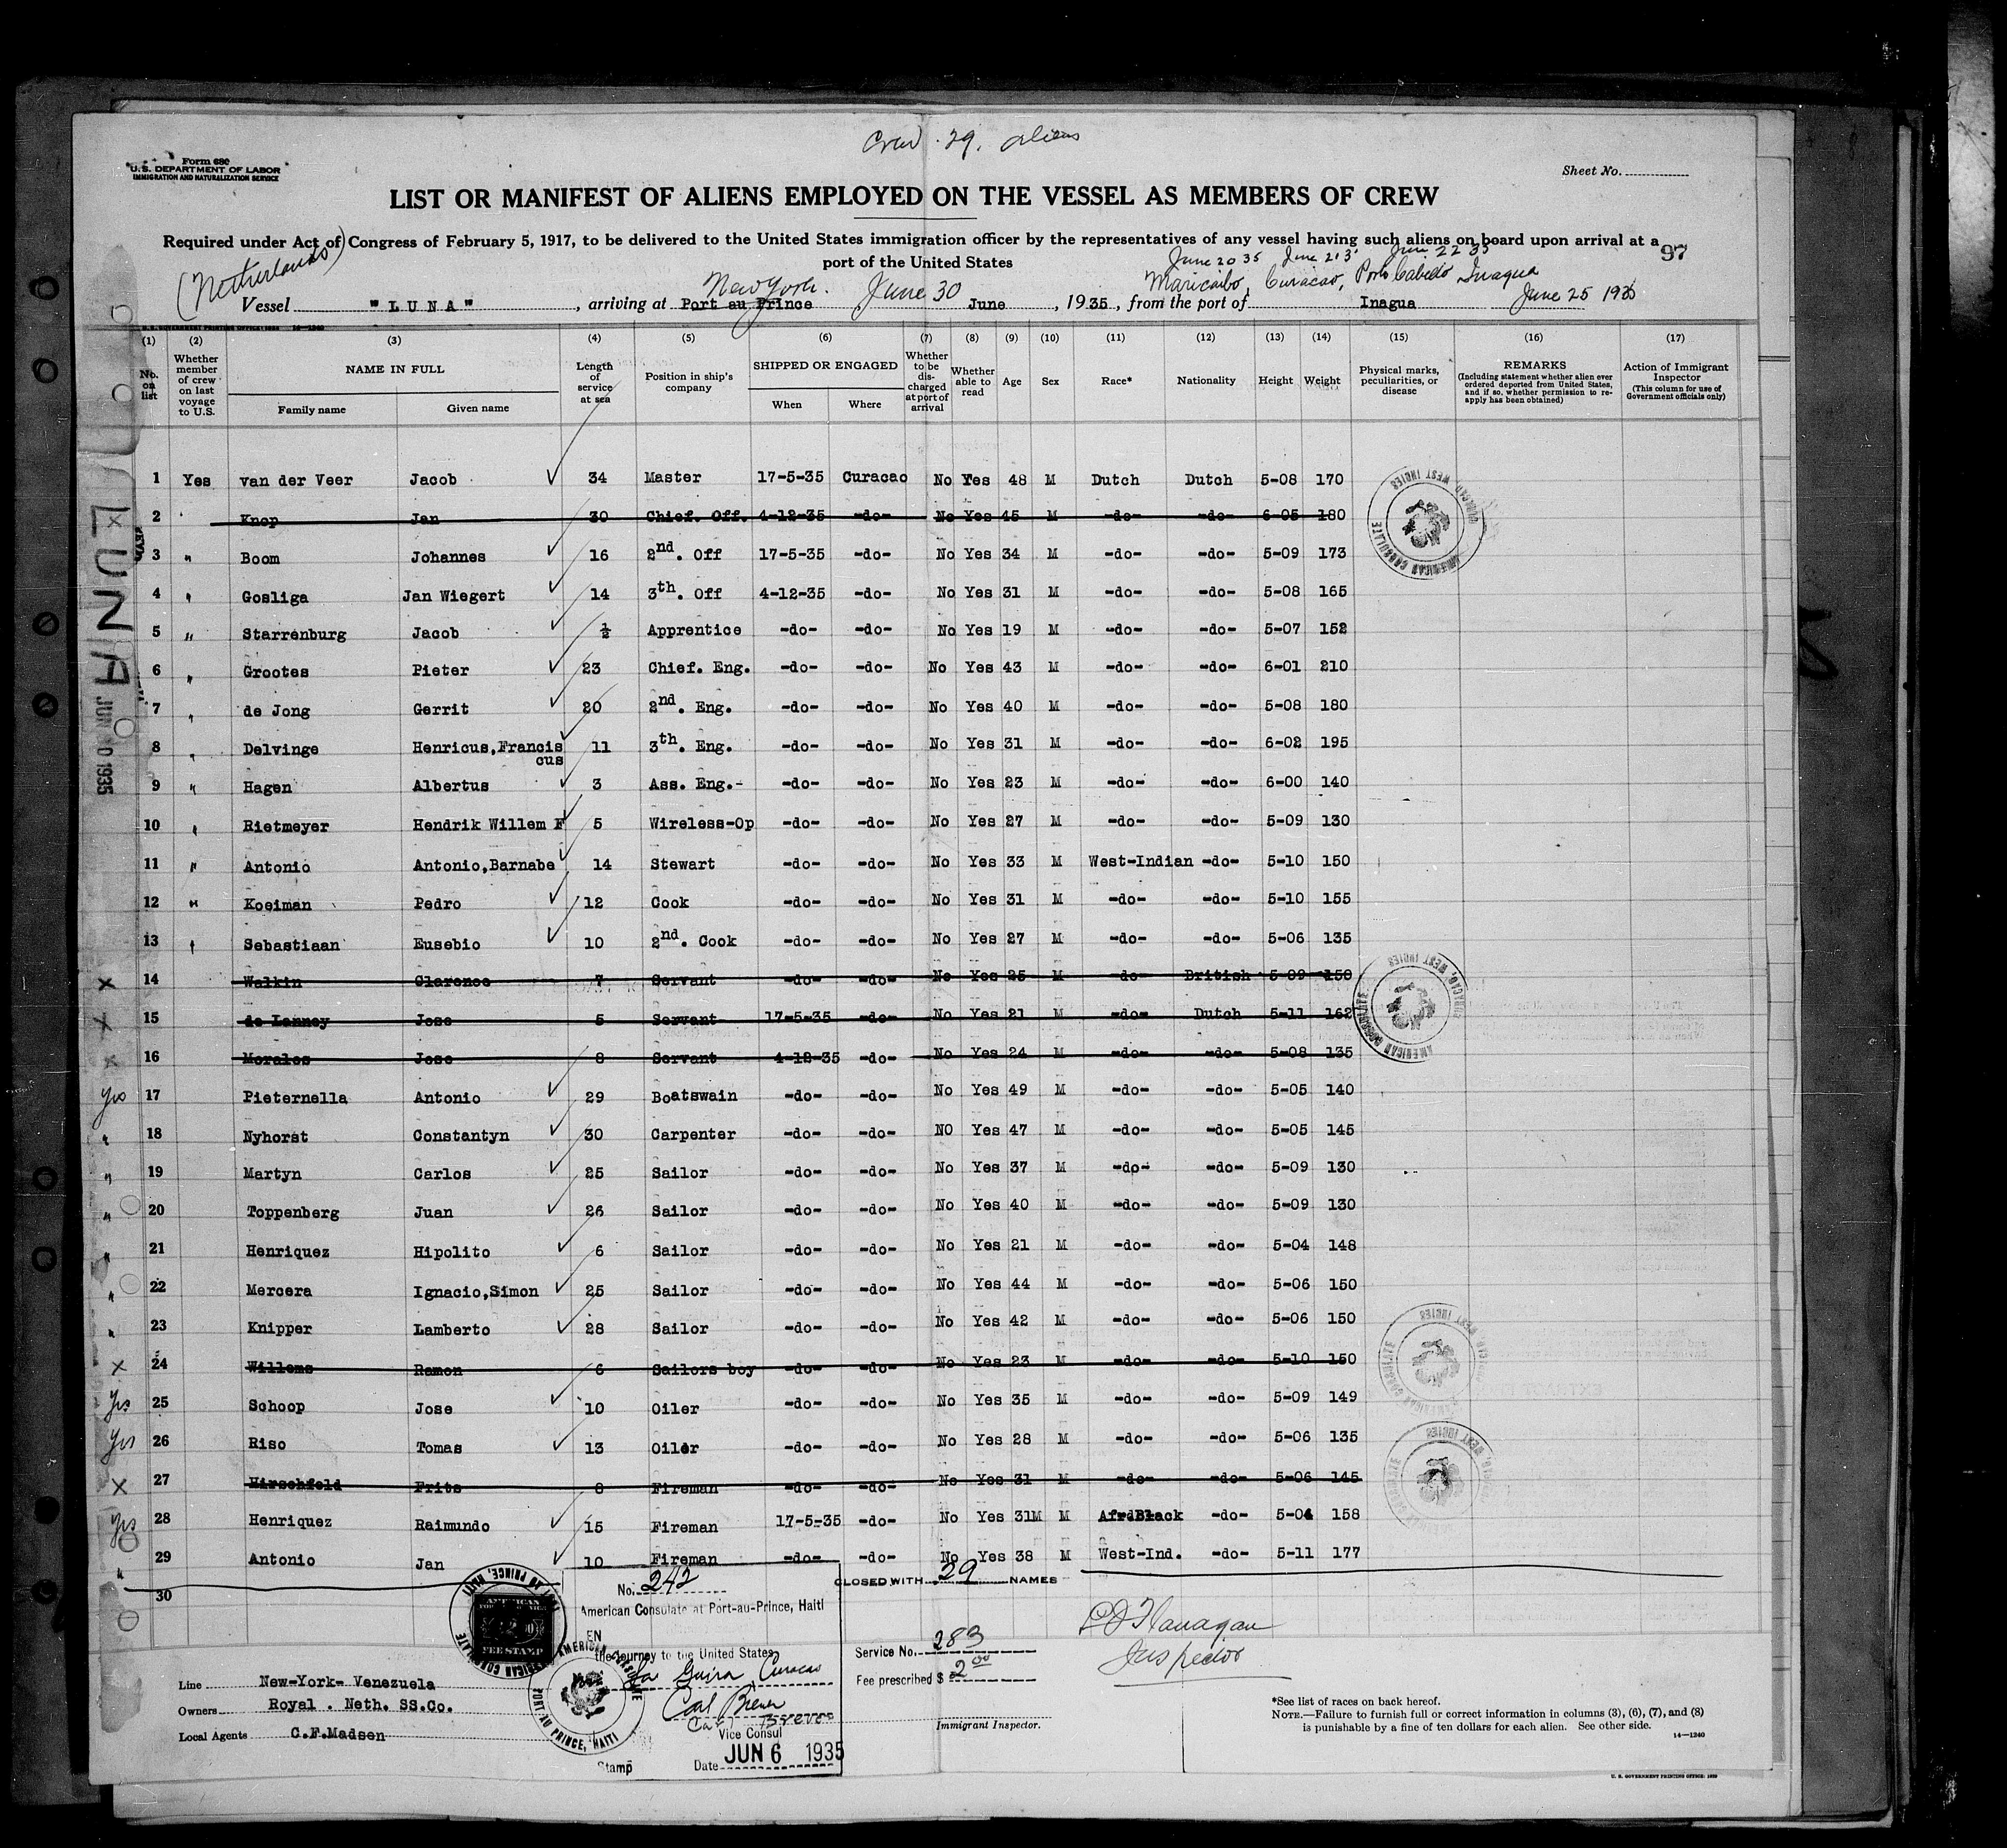 Crew 29. aliens
Form 680
U. S. DEPARTMENT OF LABOR
IMMIGRATION AND NATURALIZATION SERVICE
Sheet No.
LIST OR MANIFEST OF ALIENS EMPLOYED ON THE VESSEL AS MEMBERS OF CREW
Required under Act of Congress of February 5, 1917, to be delivered to the United States immigration officer by the representatives of any vessel having such aliens on board upon arrival at a
port of the United States
97
(Netherlands)
June 20 35 June 21 3 June 22 35
New York. June 30 Maricaibo, Curacao, Porto Cabello Inagua
Vessel "LUNA", arriving at Port au Prince June, 1935, from the port of Inagua June 25 1935
(1) (2) (3) (4) (5) (6) (7) (8) (9) (10) (11) (12) (13) (14) (15) (16) (17)
No. on list
Whether member of crew on last voyage to U.S.
NAME IN FULL
Family name Given name
Length of service at sea
Position in ship's company
SHIPPED OR ENGAGED
When Where
Whether to be discharged at port of arrival
Whether able to read
Age Sex Race* Nationality Height Weight
Physical marks, peculiarities, or disease
REMARKS
(Including statement whether alien ever ordered deported from United States, and if so, whether permission to reapply has been obtained)
Action of Immigrant Inspector
(This column for use of Government officials only)
1 Yes van der Veer Jacob 34 Master 17-5-35 Curacao No Yes 48 M Dutch Dutch 5-08 170
2 Knop Jan 30 Chief. Off. 4-12-35 -do- No Yes 45 M -do- -do- 6-05 180
3 " Boom Johannes 16 2nd. Off 17-5-35 -do- No Yes 34 M -do- -do- 5-09 173
4 " Gosliga Jan Wiegert 14 3th. Off 4-12-35 -do- No Yes 31 M -do- -do- 5-08 165
5 " Starrenburg Jacob ½ Apprentice -do- -do- No Yes 19 M -do- -do- 5-07 152
6 " Grootes Pieter 23 Chief. Eng. -do- -do- No Yes 43 M -do- -do- 6-01 210
7 " de Jong Gerrit 20 2nd. Eng. -do- -do- No Yes 40 M -do- -do- 5-08 180
8 " Delvinge Henricus,Francis cus 11 3th. Eng. -do- -do- No Yes 31 M -do- -do- 6-02 195
9 " Hagen Albertus 3 Ass. Eng.- -do- -do- No Yes 23 M -do- -do- 6-00 140
10 " Rietmeyer Hendrik Willem F 5 Wireless-Op -do- -do- No Yes 27 M -do- -do- 5-09 130
11 " Antonio Antonio,Barnabe 14 Stewart -do- -do- No Yes 33 M West-Indian -do- 5-10 150
12 " Koeiman Pedro 12 Cook -do- -do- No Yes 31 M -do- -do- 5-10 155
13 " Sebastiaan Eusebio 10 2nd. Cook -do- -do- No Yes 27 M -do- -do- 5-06 135
x 14 Walkin Clarence 7 Servant -do- -do- No Yes 25 M -do- British 5-09 150
x 15 de Lannoy Jose 5 Servant 17-5-35 -do- No Yes 21 M -do- Dutch 5-11 162
x 16 Morales Jose 8 Servant 4-12-35 -do- No Yes 24 M -do- -do- 5-08 135
yes 17 Pieternella Antonio 29 Boatswain -do- -do- No Yes 49 M -do- -do- 5-05 140
" 18 Nyhorst Constantyn 30 Carpenter -do- -do- NO Yes 47 M -do- -do- 5-05 145
" 19 Martyn Carlos 25 Sailor -do- -do- No Yes 37 M -do- -do- 5-09 130
" 20 Toppenberg Juan 26 Sailor -do- -do- No Yes 40 M -do- -do- 5-09 130
" 21 Henriquez Hipolito 6 Sailor -do- -do- No Yes 21 M -do- -do- 5-04 148
" 22 Mercera Ignacio,Simon 25 Sailor -do- -do- No Yes 44 M -do- -do- 5-06 150
" 23 Knipper Lamberto 28 Sailor -do- -do- No Yes 42 M -do- -do- 5-06 150
x 24 Willems Ramon 6 Sailors boy -do- -do- No Yes 23 M -do- -do- 5-10 150
Yes 25 Schoop Jose 10 Oiler -do- -do- No Yes 35 M -do- -do- 5-09 149
Yes 26 Riso Tomas 13 Oiler -do- -do- No Yes 28 M -do- -do- 5-06 135
x 27 Hirschfeld Frits 8 Fireman -do- -do- No Yes 31 M -do- -do- 5-06 145
yes 28 Henriquez Raimundo 15 Fireman 17-5-35 -do- No Yes 31M M Afr.Black -do- 5-04 158
" 29 Antonio Jan 10 Fireman -do- -do- No Yes 38 M West-Ind. -do- 5-11 177
30
LUNA
JUN 1935
AMERICAN CONSULATE CURACAO, WEST INDIES
CLOSED WITH 29 NAMES
No. 242
American Consulate at Port-au-Prince, Haiti
the journey to the United States
La Guira Curacao
Carl Brever
Vice Consul
Date JUN 6 1935
Stamp
AMERICAN CONSULATE PORT AU PRINCE, HAITI
FEE STAMP
Service No. 283
Fee prescribed $ 2 00
Immigrant Inspector.
Flanagan
Inspector
Line New-York- Venezuela
Owners Royal . Neth. SS.Co.
Local Agents C.F.Madsen
*See list of races on back hereof.
NOTE.—Failure to furnish full or correct information in columns (3), (6), (7), and (8)
is punishable by a fine of ten dollars for each alien. See other side.
14—1240
U. S. GOVERNMENT PRINTING OFFICE: 1929